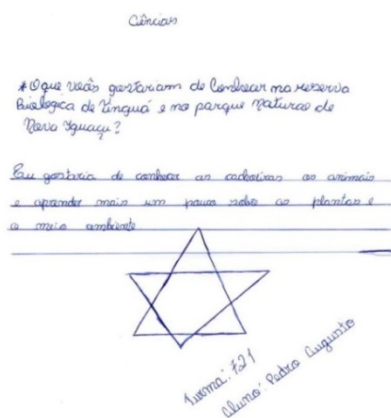 Ciências
* O que vocês gostariam de Conhecer na reserva
Biologica de Tinguá e no parque Natural de
Nova Iguaçu?
Eu gostaria de conhecer as cachoeiras os animais
e aprender mais um pouco sobre as plantas e
o meio ambiente
Turma: 721
Aluno: Pedro Augusto